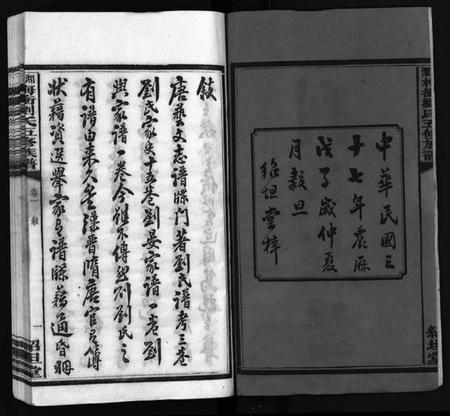 中華民國三
十七年農曆
戊子歲仲夏
月穀旦
紹坦堂梓
敍
唐藝文志譜牒門著劉氏譜考三卷
劉氏家史十五卷劉晏家譜一卷劉
輿家譜一卷今雖不傳然則劉氏之
有譜由來久矣溯晉隋唐官有簿
狀藉資選舉家有譜牒藉通昏姻
卷一 敍
一
紹坦堂